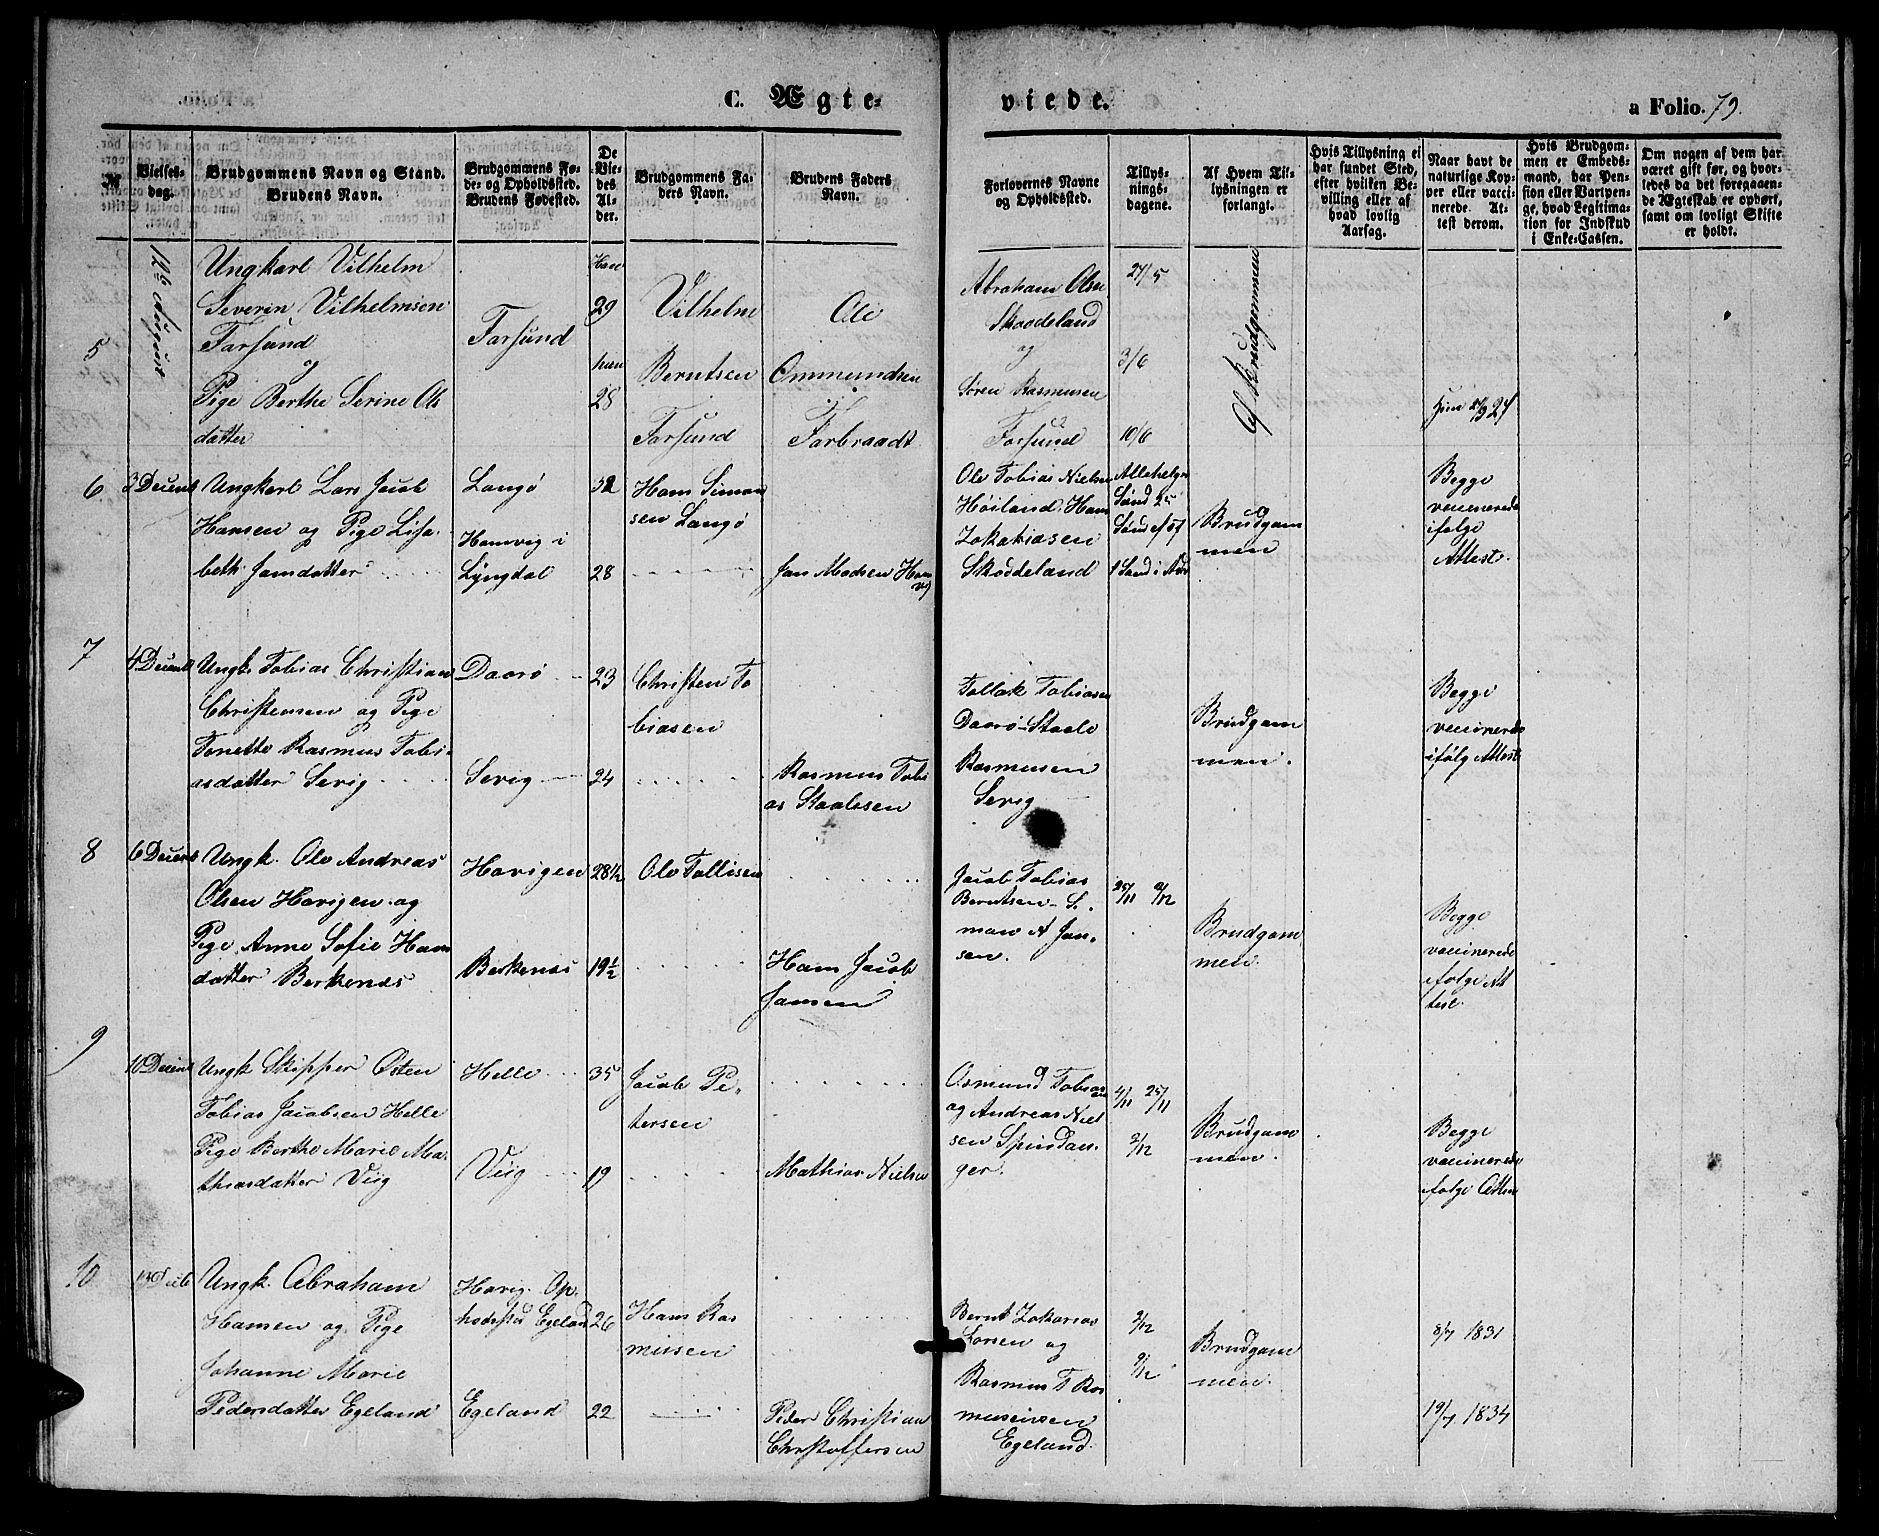 C. Ægte-
viede.
a Folio. 79.
№
Vielses-
dag.
Brudgommens Navn og Stand.
Brudens Navn.
Brudgommens Fø-
de- og Opholdssted.
Brudens Fødested.
De
Vie-
des
Al-
der.
Brudgommens Fa-
ders Navn.
Brudens Faders
Navn.
Forlovernes Navne
og Opholdssted.
Tillys-
nings-
dagene.
Af Hvem Til-
lysningen er
forlangt.
Hvis Tillysning ei
har fundet Sted,
efter hvilken Be-
villing eller af
hvad lovlig
Aarsag.
Naar havt de
naturlige Kop-
per eller vacci-
nerede. At-
test derom.
Hvis Brudgom-
men er Embeds-
mand, har Pen-
sion eller Vartpen-
ge, hvad Legitima-
tion for Indskud
i Enke-Cassen.
Om nogen af dem har
været gift før, og hvor-
ledes da det foregaaen-
de Ægteskab er ophørt,
samt om lovligt Skifte
er holdt.
5
12te August
Ungkarl Vilhelm
Severin Vilhelmsen
Farsund
og
Pige Berthe Serine Ols
datter
Farsund
Han
29
hun
28
Vilhelm
Berntsen
Farsund
Ole
Ommundsen
Farbraadt
Abraham Olsen
Skoddeland
og
Søren Rasmusen
Farsund
27/5
3/6
10/6
Af Brudgommen
6
3 Decemb
Ungkarl Lars Jacob
Hansen og Pige Lisa-
beth Jansdatter
Langø
Hamvig i
Lyngdal
28
Hans Simon
sen Langø
Jan Madsen Ham
vig
Ole Tobias Nielsen
Høiland. Hans
Zakariasen
Skoddeland
Allehelgn
Sønd 25
1 Sønd i Adv
Brudgom
men
Begge
vaccinerede
ifølge
Attest.
7
4 Decemb
Ungk. Tobias Christian
Christensen og Pige
Tonette Rasmus Tobi-
asdatter Sevig
Daarø
Sevig
23
24
Christen To
biasen
Rasmus Tobi
as Staalesen
Tollak Tobiasen
Daarø - Staale
Rasmusen
Sevig
Brudgom
men.
Begge
vaccinerede
ifølg Attest
8
6 Decemb
Ungk. Ole Andreas
Olsen Havigen og
Pige Anne Sofie Hans
datter Berkenes
Havigen
Berkenes
28½
19½
Ole Tollisen
Hans Jacob
Jansen
Jacob Tobias
Berntsen - S.
mon A Jan-
sen.
25/11 2/12
Brudgom
men.
Begge
vaccinerede
ifølge At
test.
9
10 Decemb
Ungk Skipper Osten
Tobias Jacobsen Helle
Pige Berthe Marie Ma-
thiasdatter Viig
Helle
Viig
35
19
Jacob Pe-
tersen
Mathias Nielsen
Osmund Tobiasen
og Andreas Niel
sen Spindan-
ger.
4/11 25/11
2/12
Brudgom
men.
Begge
vaccinerede
ifølge Attest
10
Ungk. Abraham
Hansen og Pige
Johanne Marie
Pedersdatter Egeland
Havig. Op.
holdssted Egeland
Egeland
26
22
Hans Ras
musen
Peder Christian
Christoffersen
Bernt Zakarias
Larsen og
Rasmus T Ras
musensen
Egeland.
2/12
9/12
Brudgom
men.
8/7 1831
19/7 1834